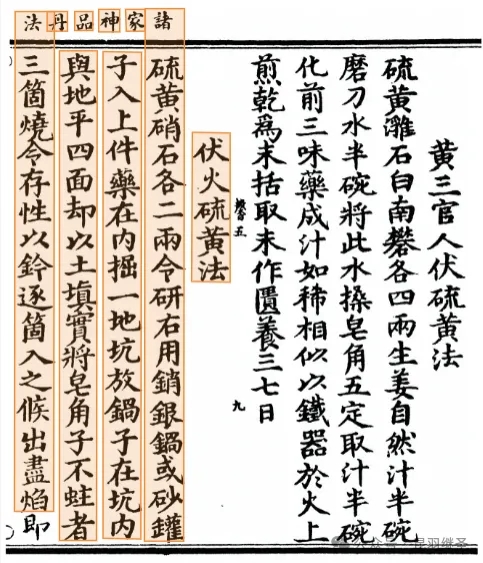 諸家神品丹法
黄三官人伏硫黄法
硫黄濰石白南礬各四兩生姜自然汁半碗
磨刀水半碗將此水搡皂角五定取汁半碗
化前三味藥成汁如稀相似以鐵器於火上
煎乾爲末括取末作匱養三七日
五 九
伏火硫黄法
硫黄硝石各二兩令研右用銷銀鍋或砂鑵
子入上件藥在内掘一地坑放鍋子在坑内
與地平四面却以土填實將皂角子不蛀者
三箇燒令存性以鈐逐箇入之候出盡焰即
公众号 · 昆羽继圣